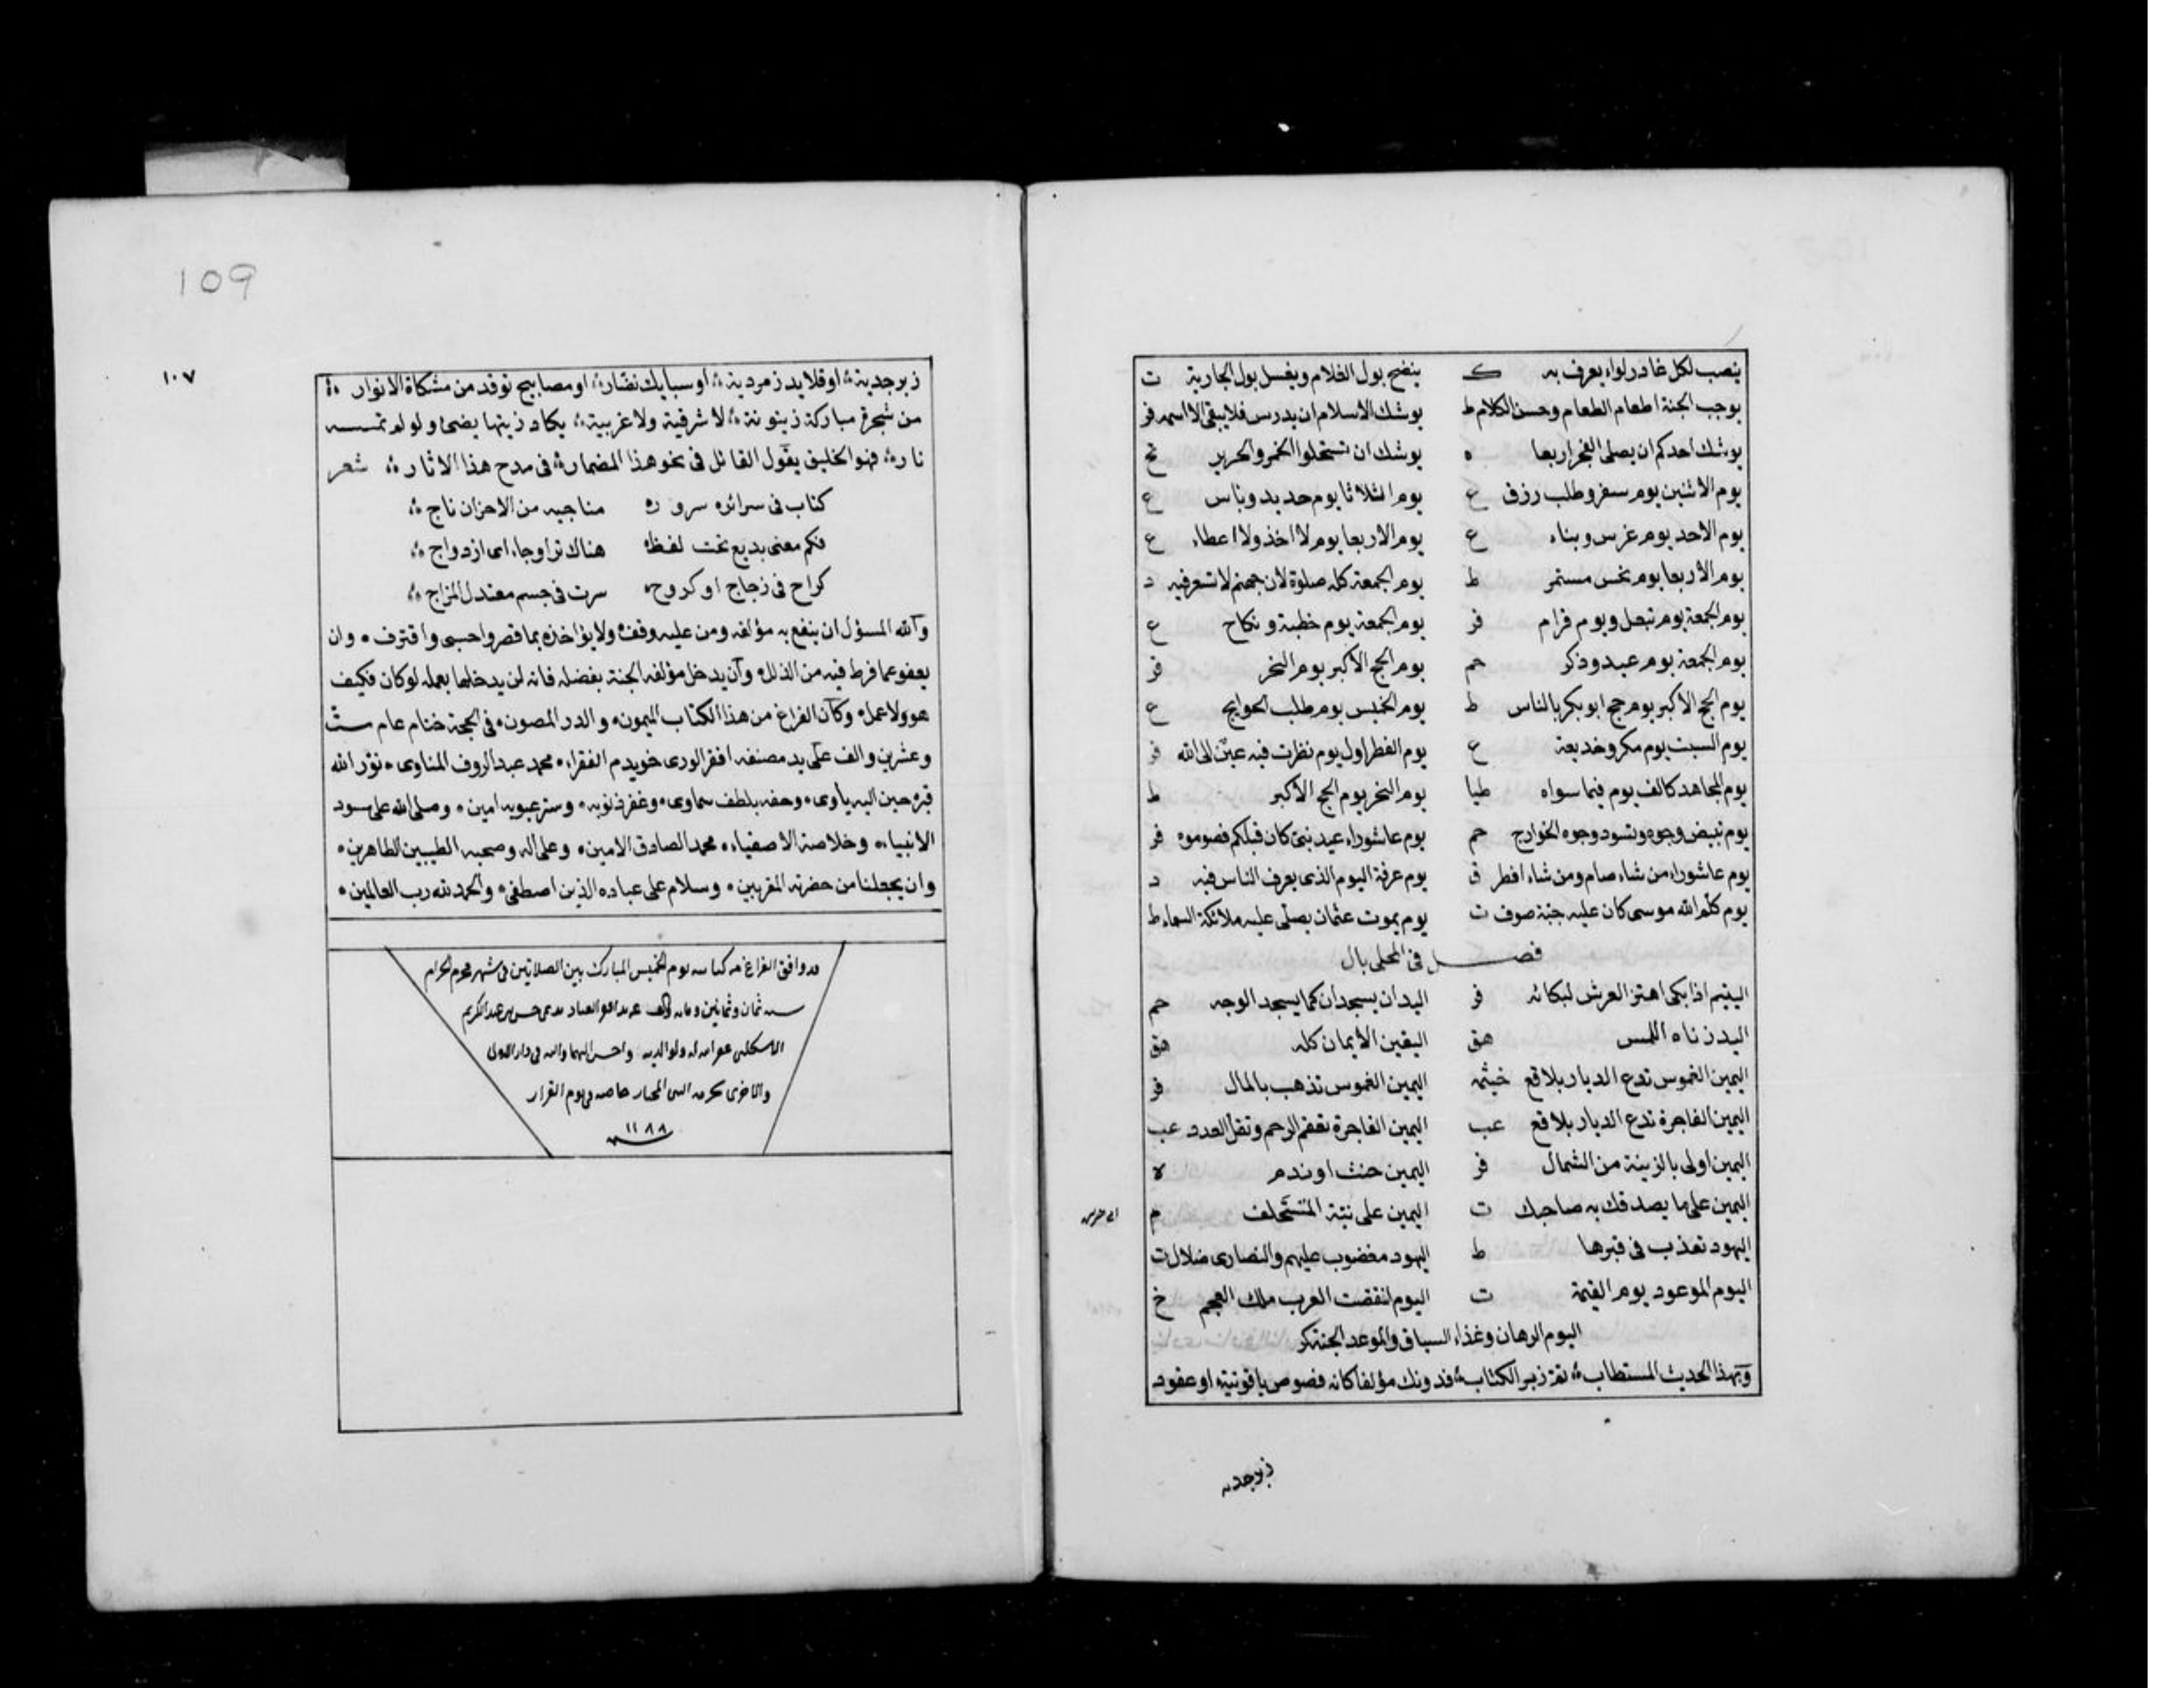 ينصب لكل غادر لواء يعرف به ك ينضح بول الغلام ويغسل بول الجارية ت
يوجب الجنة اطعام الطعام وحسن الكلام ط يوشك الاسلام ان يدرس فلا يبقى الا اسمه فر
يوشك احدكم ان يصلى الفجر اربعا ه يوشك ان تستحلوا الخمر والحرير تخ
يوم الاثنين يوم سفر وطلب رزق ع يوم الثلاثا يوم حديد وباس ع
يوم الاحد يوم غرس وبناء ع يوم الاربعا يوم لا اخذ ولا اعطاء ع
يوم الاربعا يوم نحس مستمر ط يوم الجمعة كله صلوة لان جهنم لا تسعر فيه د
يوم الجمعة يوم تبعل ويوم قرام فر يوم الجمعة يوم خطبة ونكاح ع
يوم الجمعة يوم عيد وذكر حم يوم الحج الاكبر يوم النحر فر
يوم الحج الاكبر يوم حج ابو بكر بالناس ط يوم الخميس يوم طلب الحوايج ع
يوم السبت يوم مكر وخديعة ع يوم الفطر اول يوم نظرت فيه عين الى الله فر
يوم المجاهد كالف يوم فيما سواه طيا يوم النحر يوم الحج الاكبر ط
يوم تبيض وجوه وتسود وجوه الخوارج حم يوم عاشوراء عيد نبي كان قبلكم فصوموه فر
يوم عاشوراء من شاء صام ومن شاء افطر ق يوم عرفة اليوم الذى يعرف الناس فيه د
يوم كلم الله موسى كان عليه جبة صوف ت يوم يموت عثمان يصلى عليه ملائكة السماء ط
فصل فى المحلى بال
اليتيم اذا بكى اهتز العرش لبكائه فر اليدان يسجدان كما يسجد الوجه حم
اليد زناه اللمس هق اليقين الايمان كله هق
اليمين الغموس تدع الديار بلاقع خيثمه اليمين الغموس تذهب بالمال فر
اليمين الفاجرة تدع الديار بلاقع عب اليمين الفاجرة تعقم الرحم وتقل العدد عب
اليمين اولى بالزينة من الشمال فر اليمين حنث او ندم ه
اليمين على ما يصدقك به صاحبك ت اليمين على نية المستحلف م
اليهود تعذب فى قبرها ط اليهود مغضوب عليهم والنصارى ضلال ت
اليوم الموعود يوم القيمة ت اليوم انقضت العرب ملك العجم خ
اليوم الرهان وغدا السباق والموعد الجنة كر
وبهذا الحديث المستطاب تم زبر الكتاب فدونك مؤلفا كانه فصوص ياقوتية او عقود
زبرجديه
109
١٠٧
زبرجدية او قلايد زمردية او سبايك نضار او مصابيح توقد من مشكاة الانوار
من شجرة مباركة زيتونة لا شرقية ولا غربية يكاد زيتها يضئ ولو لم تمسسه
نار فهو الخليق بقول القائل فى نحو هذا المضمار فى مدح هذا الاثار شعر
كتاب فى سرائره سرور مناجيه من الاحزان ناج
فكم معنى بديع تحت لفظ هناك تزاوجا اى ازدواج
كراح فى زجاج او كروح سرت فى جسم معتدل المزاج
والله المسؤل ان ينفع به مؤلفه ومن عليه وقف ولا يؤاخذه بما قصر واحسى واقترف وان
يعفو عما فرط فيه من الذلل وان يدخل مؤلفه الجنة بفضله فانه لن يدخلها بعمله لو كان فكيف
هو ولا عمل وكان الفراغ من هذا الكتاب الميمون والدر المصون فى الحجة ختام عام ست
وعشرين والف على يد مصنفه افقر الورى خويدم الفقراء محمد عبد الروف المناوى نور الله
قبره حين اليه ياوى وحفه بلطف سماوى وغفر ذنوبه وستر عيوبه امين وصلى الله على سود
الانبياء وخلاصة الاصفياء محمد الصادق الامين وعلى اله وصحبه الطيبين الطاهرين
وان يجعلنا من حضرته المقربين وسلام على عباده الذين اصطفى والحمد لله رب العالمين
قد وافق الفراغ من كتابته يوم الخميس المبارك بين الصلاتين فى شهر محرم الحرام
سنه ثمان وثمانين ومايه والف على يد افقر العباد حسن بن عبد الكريم
غفر الله له ولوالديه واحسن اليهما واليه فى دار الاولى
والاخرى بحرمه النبى المختار يوم القرار
١١٨٨